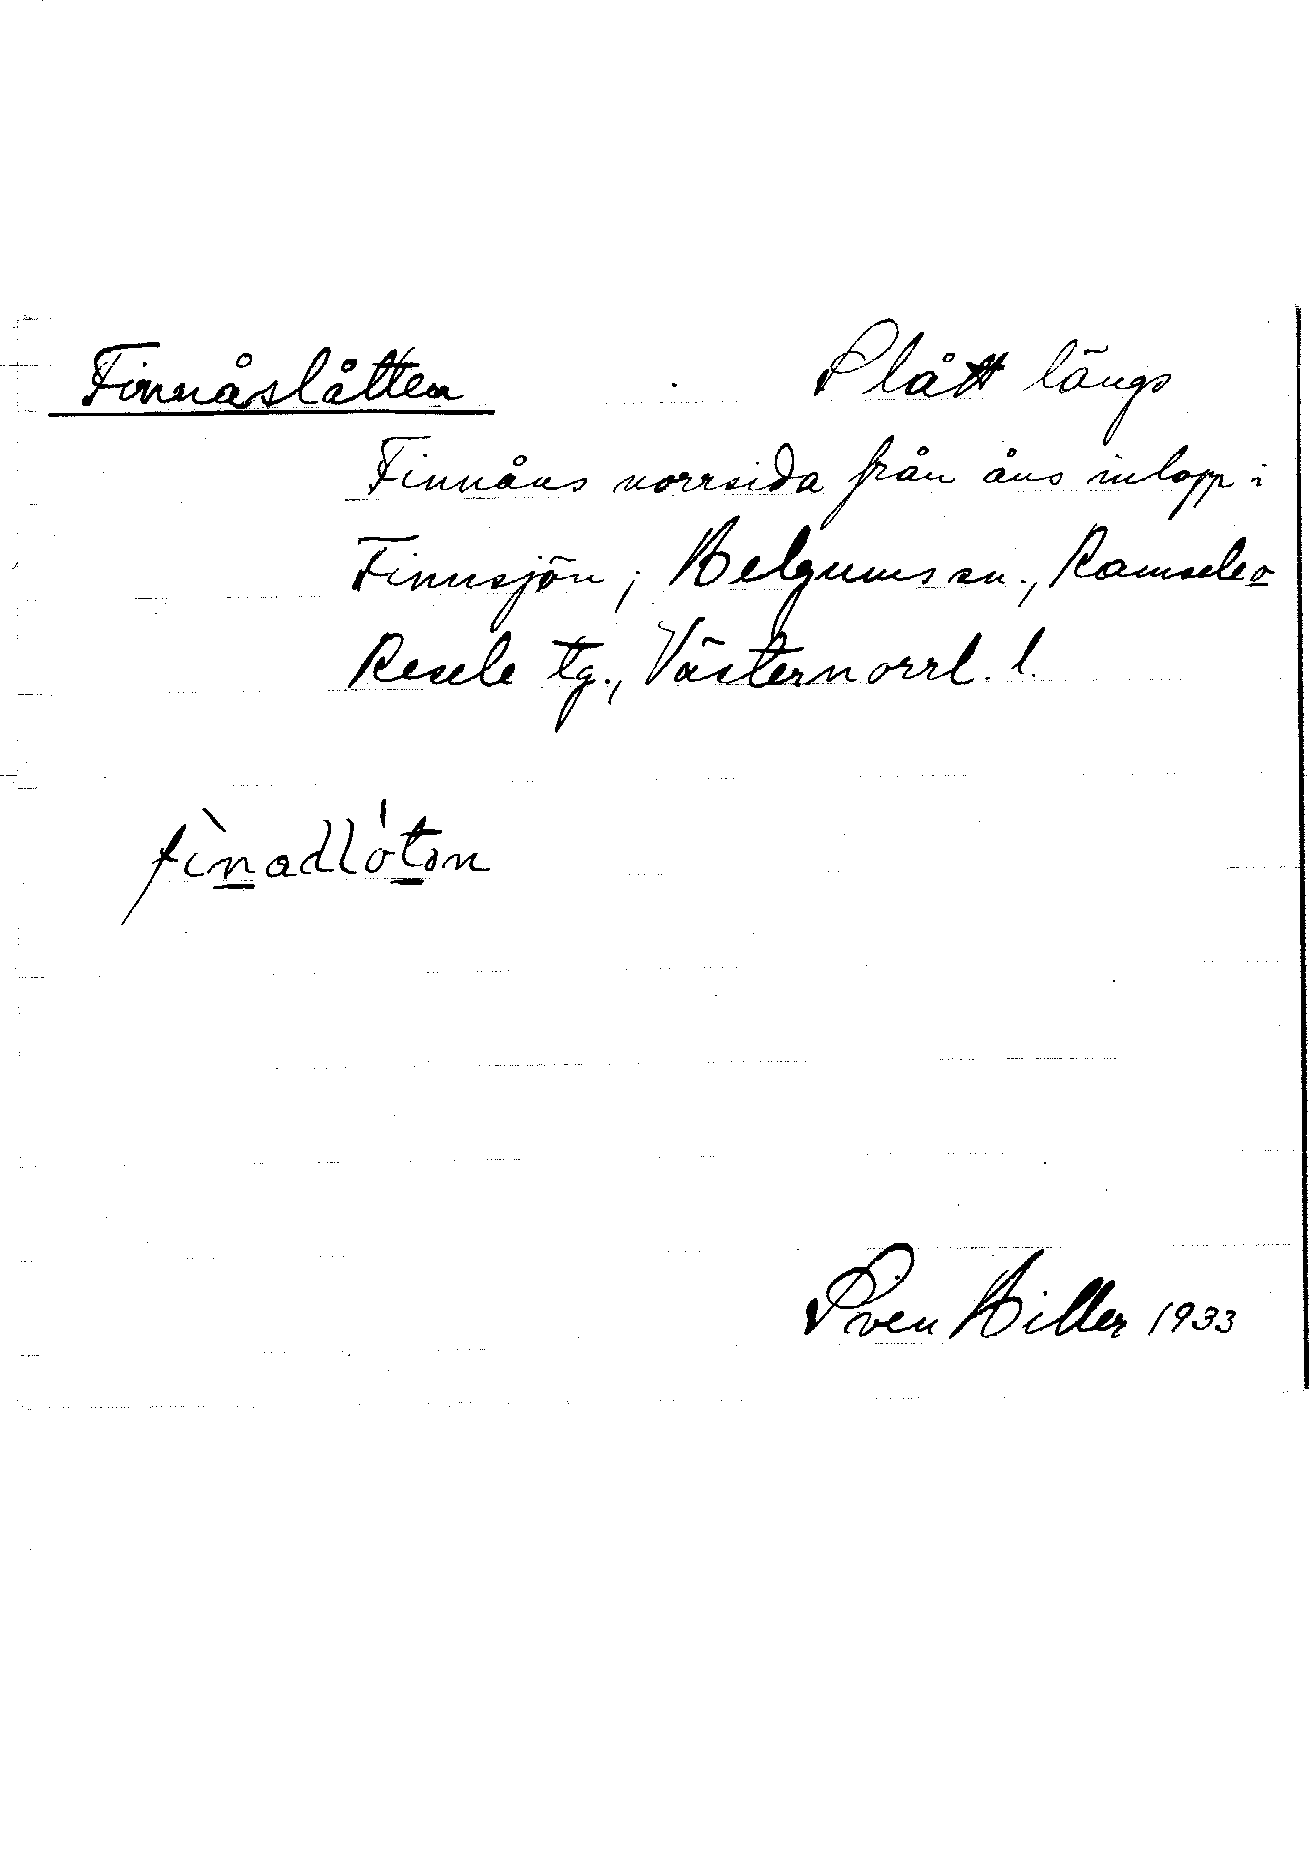 Finnåslåtten Slått längs
Finnåns norrsida från åns inlopp i
Finnsjön; Helgums sn., Ramsele o
Resele tg., Västernorrl. l.
fìnadlóton
Sven Hiller 1933